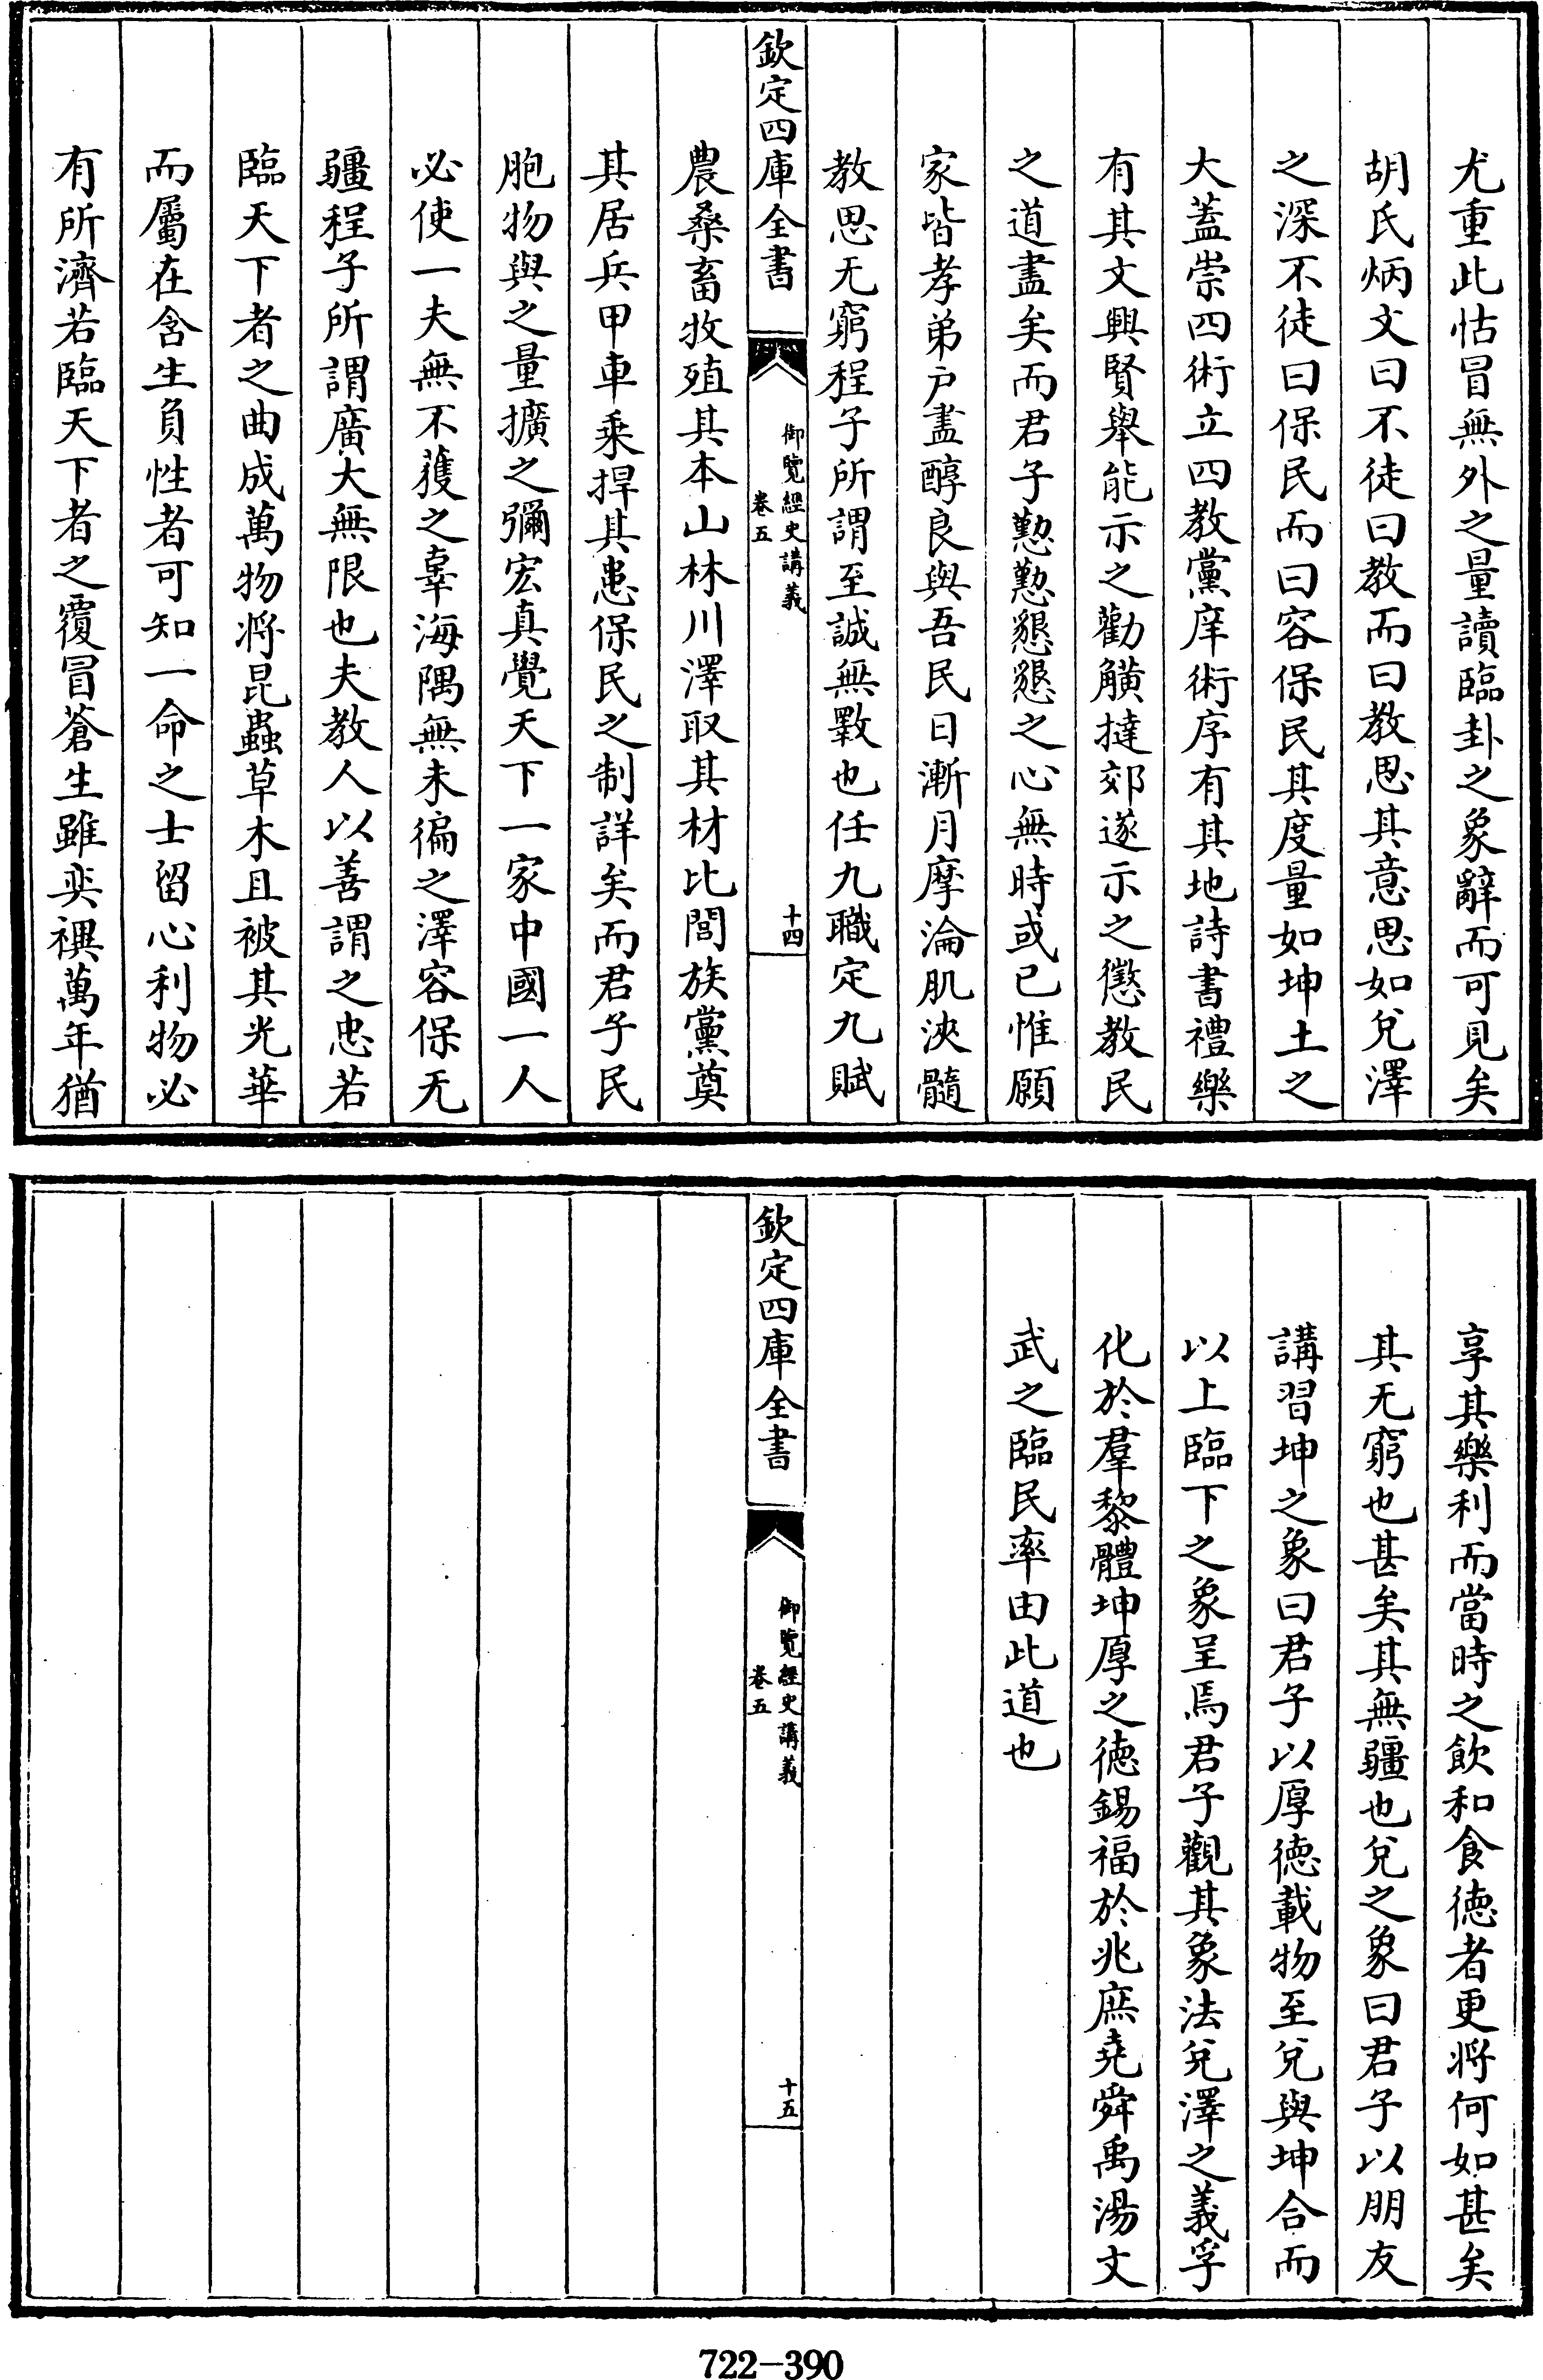 尤重此怙冒無外之量讀臨卦之象辭而可見矣
胡氏炳文曰不徒曰教而曰教思其意思如兌澤
之深不徒曰保民而曰容保民其度量如坤土之
大蓋崇四術立四教黨庠術序有其地詩書禮樂
有其文興賢舉能示之勸觵撻郊遂示之懲教民
之道盡矣而君子懃懃懇懇之心無時或已惟願
家皆孝弟戶盡醇良與吾民日漸月摩淪肌浹髓
教思无窮程子所謂至誠無斁也任九職定九賦
欽定四庫全書
御覽經史講義
卷五
十四
農桑畜牧殖其本山林川澤取其材比閭族黨奠
其居兵甲車乘捍其患保民之制詳矣而君子民
胞物與之量擴之彌宏真覺天下一家中國一人
必使一夫無不獲之辜海隅無未徧之澤容保无
疆程子所謂廣大無限也夫教人以善謂之忠若
臨天下者之曲成萬物將昆蟲草木且被其光華
而屬在含生負性者可知一命之士留心利物必
有所濟若臨天下者之覆冒蒼生雖奕禩萬年猶
享其樂利而當時之飲和食徳者更將何如甚矣
其无窮也甚矣其無疆也兌之象曰君子以朋友
講習坤之象曰君子以厚徳載物至兌與坤合而
以上臨下之象呈焉君子觀其象法兌澤之義孚
化於羣黎體坤厚之徳錫福於兆庶堯舜禹湯文
武之臨民率由此道也
欽定四庫全書
御覽經史講義
卷五
十五
722-390